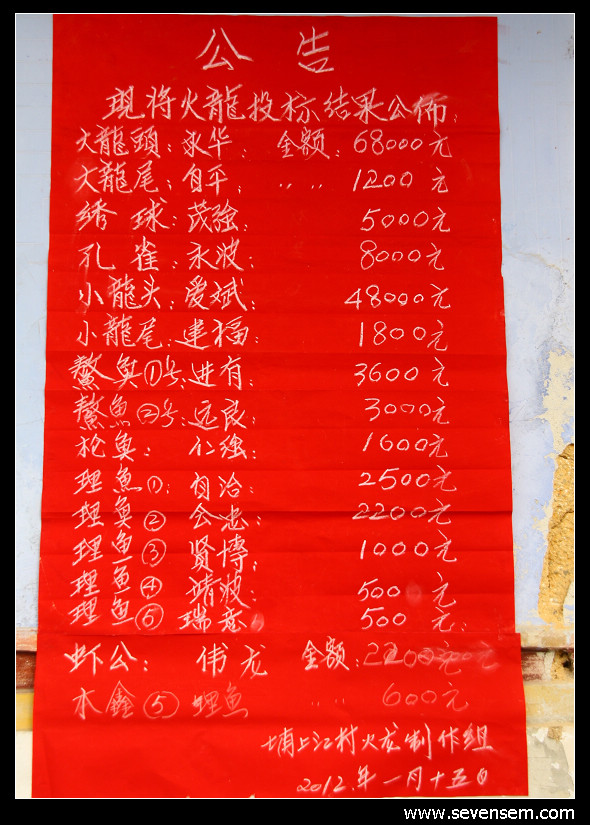 公告
現将火龍投标结果公佈:
火龍頭:永华: 金额:68000元
火龍尾:自平: 〃 〃 1200元
绣球:茂強: 5000元
孔雀:永波: 8000元
小龍头:爱斌: 48000元
小龍尾:建福: 1800元
鰲魚①号:进有: 3600元
鰲魚②号:远良: 3000元
枪魚: 仁強: 1600元
理魚①:自治: 2500元
理魚②公忠: 2200元
理鱼③贤博, 1000元
理鱼④靖波: 500元
理鱼⑤瑞意 500元
虾公: 伟龙 金额:2200元
木鑫⑤鲤魚 〃 〃 600元
埔上江村火龙制作组
2012.年一月十五日
www.sevensem.com